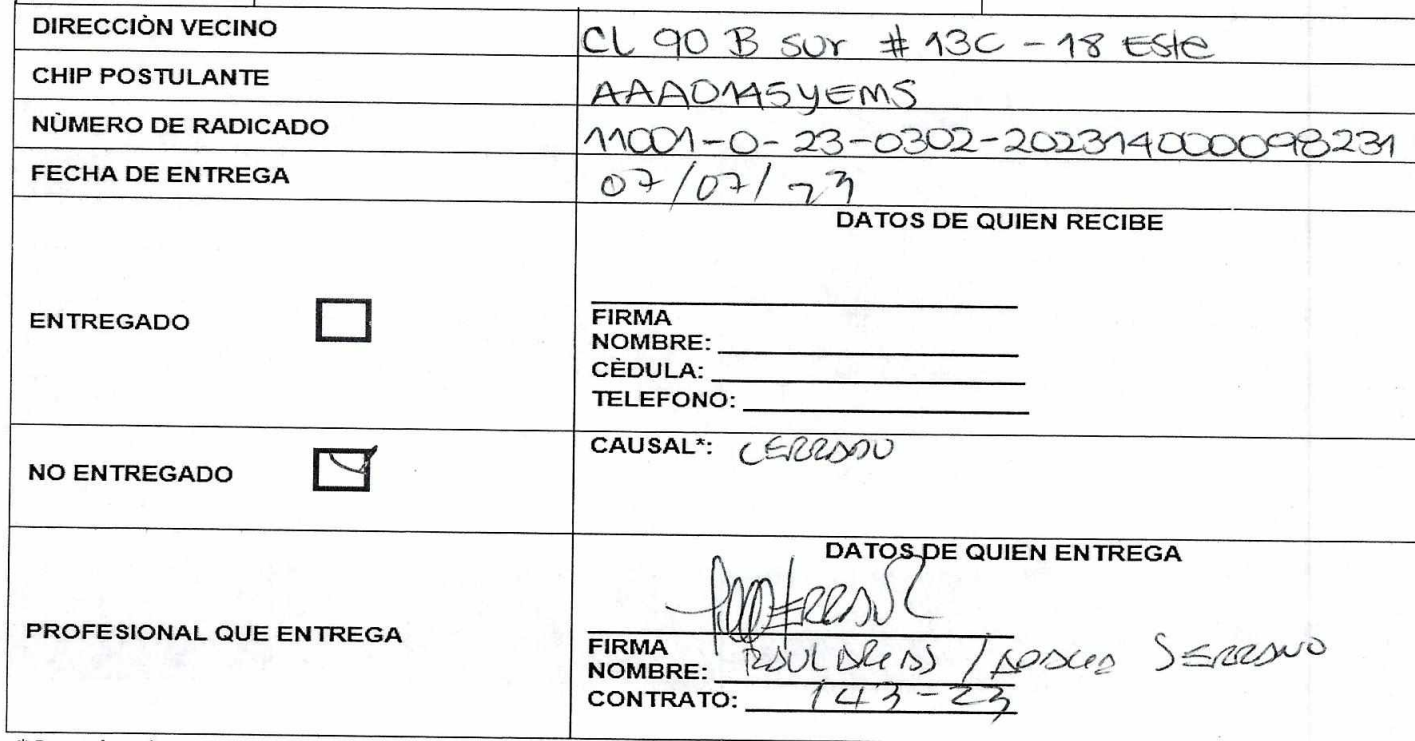 DIRECCIÒN VECINO
CL 90 B SUr # 13C - 18 Este
CHIP POSTULANTE
AAA0145YEMS
NÙMERO DE RADICADO
11001-0-23-0302-202314000098231
FECHA DE ENTREGA
07/07/23
DATOS DE QUIEN RECIBE
ENTREGADO
FIRMA
NOMBRE:
CÈDULA:
TELEFONO:
NO ENTREGADO
CAUSAL*: CERRADO
DATOS DE QUIEN ENTREGA
PROFESIONAL QUE ENTREGA
FIRMA
NOMBRE: RAUL / SERRANO
CONTRATO: 143-23